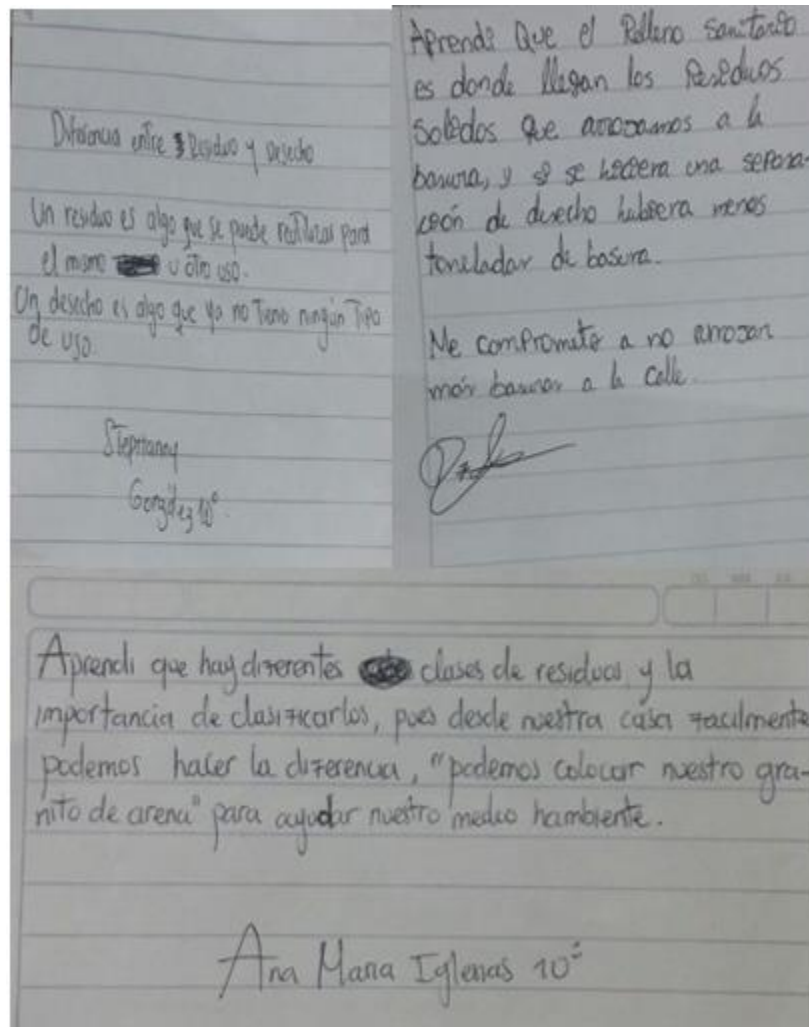 Diferencia entre Residuo y Desecho
Un residuo es algo que se puede reutilizar para
el mismo u otro uso.
Un desecho es algo que ya no tiene ningún tipo
de uso.
Stephanny
González 10°.
Aprendi Que el Relleno Sanitario
es donde llegan los Residuos
Solidos Que arrojamos a la
basura, y si se hiciera una separa-
ción de desecho hubiera menos
toneladar de basura.
Me comprometo a no arrojar
más basuras a la calle.
Aprendi que hay diferentes clases de residuos, y la
importancia de clasificarlos, pues desde nuestra casa facilmente
podemos hacer la diferencia, "podemos colocar nuestro gra-
nito de arena" para ayudar nuestro medio hambiente.
Ana Maria Iglesias 10°